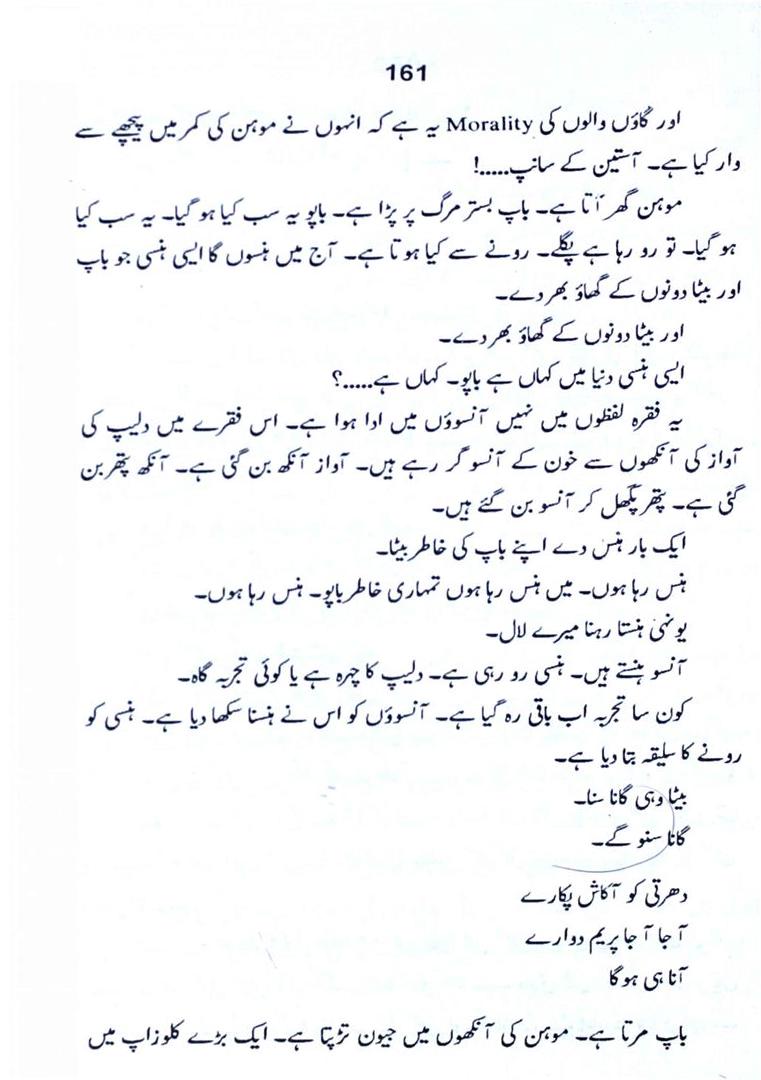 161
اور گاؤں والوں کی Morality یہ ہے کہ انہوں نے موہن کی کمر میں پیچھے سے
وار کیا ہے۔ آستین کے سانپ.....!
موہن گھر آتا ہے۔ باپ بستر مرگ پر پڑا ہے۔ باپو یہ سب کیا ہو گیا۔ یہ سب کیا
ہو گیا۔ تو رو رہا ہے پگلے۔ رونے سے کیا ہوتا ہے۔ آج میں ہنسوں گا ایسی ہنسی جو باپ
اور بیٹا دونوں کے گھاؤ بھر دے۔
اور بیٹا دونوں کے گھاؤ بھر دے۔
ایسی ہنسی دنیا میں کہاں ہے باپو۔ کہاں ہے.....؟
یہ فقرہ لفظوں میں نہیں آنسوؤں میں ادا ہوا ہے۔ اس فقرے میں دلیپ کی
آواز کی آنکھوں سے خون کے آنسو گر رہے ہیں۔ آواز آنکھ بن گئی ہے۔ آنکھ پتھر بن
گئی ہے۔ پتھر پگھل کر آنسو بن گئے ہیں۔
ایک بار ہنس دے اپنے باپ کی خاطر بیٹا۔
ہنس رہا ہوں۔ میں ہنس رہا ہوں تمہاری خاطر باپو۔ ہنس رہا ہوں۔
یونہی ہنستا رہنا میرے لال۔
آنسو ہنستے ہیں۔ ہنسی رو رہی ہے۔ دلیپ کا چہرہ ہے یا کوئی تجربہ گاہ۔
کون سا تجربہ اب باقی رہ گیا ہے۔ آنسوؤں کو اس نے ہنسنا سکھا دیا ہے۔ ہنسی کو
رونے کا سلیقہ بتا دیا ہے۔
بیٹا وہی گانا سنا۔
گانا سنو گے۔
دھرتی کو آکاش پکارے
آ جا آ جا پریم دوارے
آنا ہی ہو گا
باپ مرتا ہے۔ موہن کی آنکھوں میں جیون تڑپتا ہے۔ ایک بڑے کلوزاپ میں